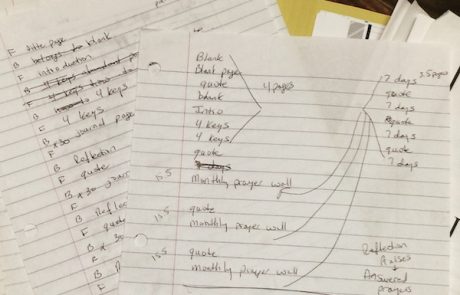 F title page
B belongs to blank
F introduction
B
F 4 keys
B 4 keys
F 4 keys
B x 30 journal page
B Reflection
F quote
B x 30
B Reflec
F quote
B x 30
B
Blank
Blank page
quote
blank
Intro
4 keys
4 keys
quote
7 days
Monthly prayer wall
quote
Monthly prayer wall
quote
monthly prayer wall
4 pages
7 days
quote
7 days
quote
7 days
quote
7 days
Reflection
Praises
Answered
prayers